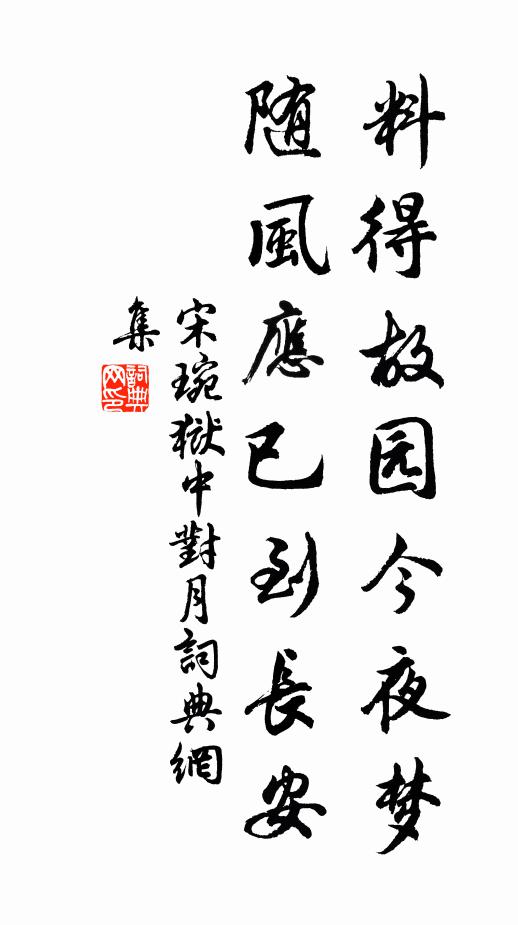 料得故园今夜梦
随風應已到長安
宋琬獄中對月詞典網
集
詞典
网印